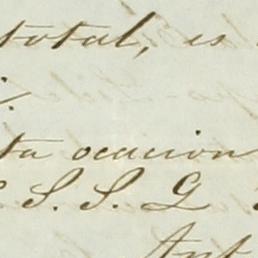 total, is
ta ocacion
S. S. G
Ant